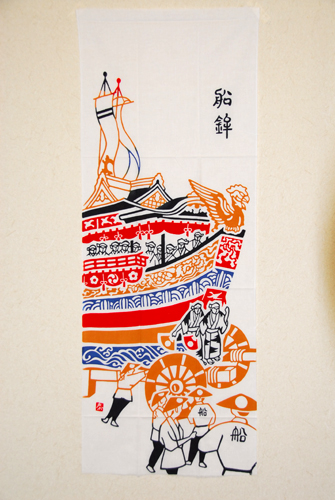 船
鉾
船
船